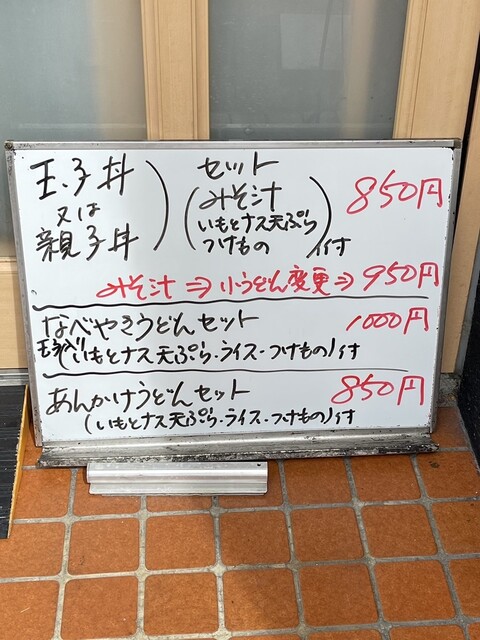 玉子丼
又は
親子丼
セット
みそ汁
いもとナス天ぷら
つけもの
付
850円
みそ汁⇒小うどん変更⇒950円
なべやきうどんセット 1000円
(いもとナス天ぷら・ライス・つけもの)付
あんかけうどんセット 850円
(いもとナス天ぷら・ライス・つけもの)付